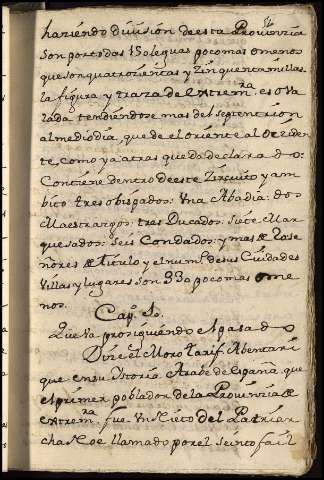 54
haziendo diuision deesta Prouinzia
son portodas 150 leguas pocomas omenos
que son quatrozientas y Zinquenta millas.
la figura y traza de Extremra. es oVa
lada tendiendose mas del septentrion
al mediodia, que de el oriente al Oczide
nte, como ya atras que da declarado:
Contiene dentro deeste Zircuito y am
bito tres obispados: Vna Abadia: dos
Maestrazgos: tres Ducados: siete Mar
quesados: seis Condados: y mas de
ñores de titulo y el num.o de sus Ciudades
Villas y lugares son 330 pocomas ome
nos.
Cap.
Que Va prosiguiendo el pasado
Dize el Moro tarif Abentari
que en su Istoria Arabe de España, que
el primer poblador de la Prouinzia de
extremra. fue Vn Nieto del Patriar
cha Noe llamado por el